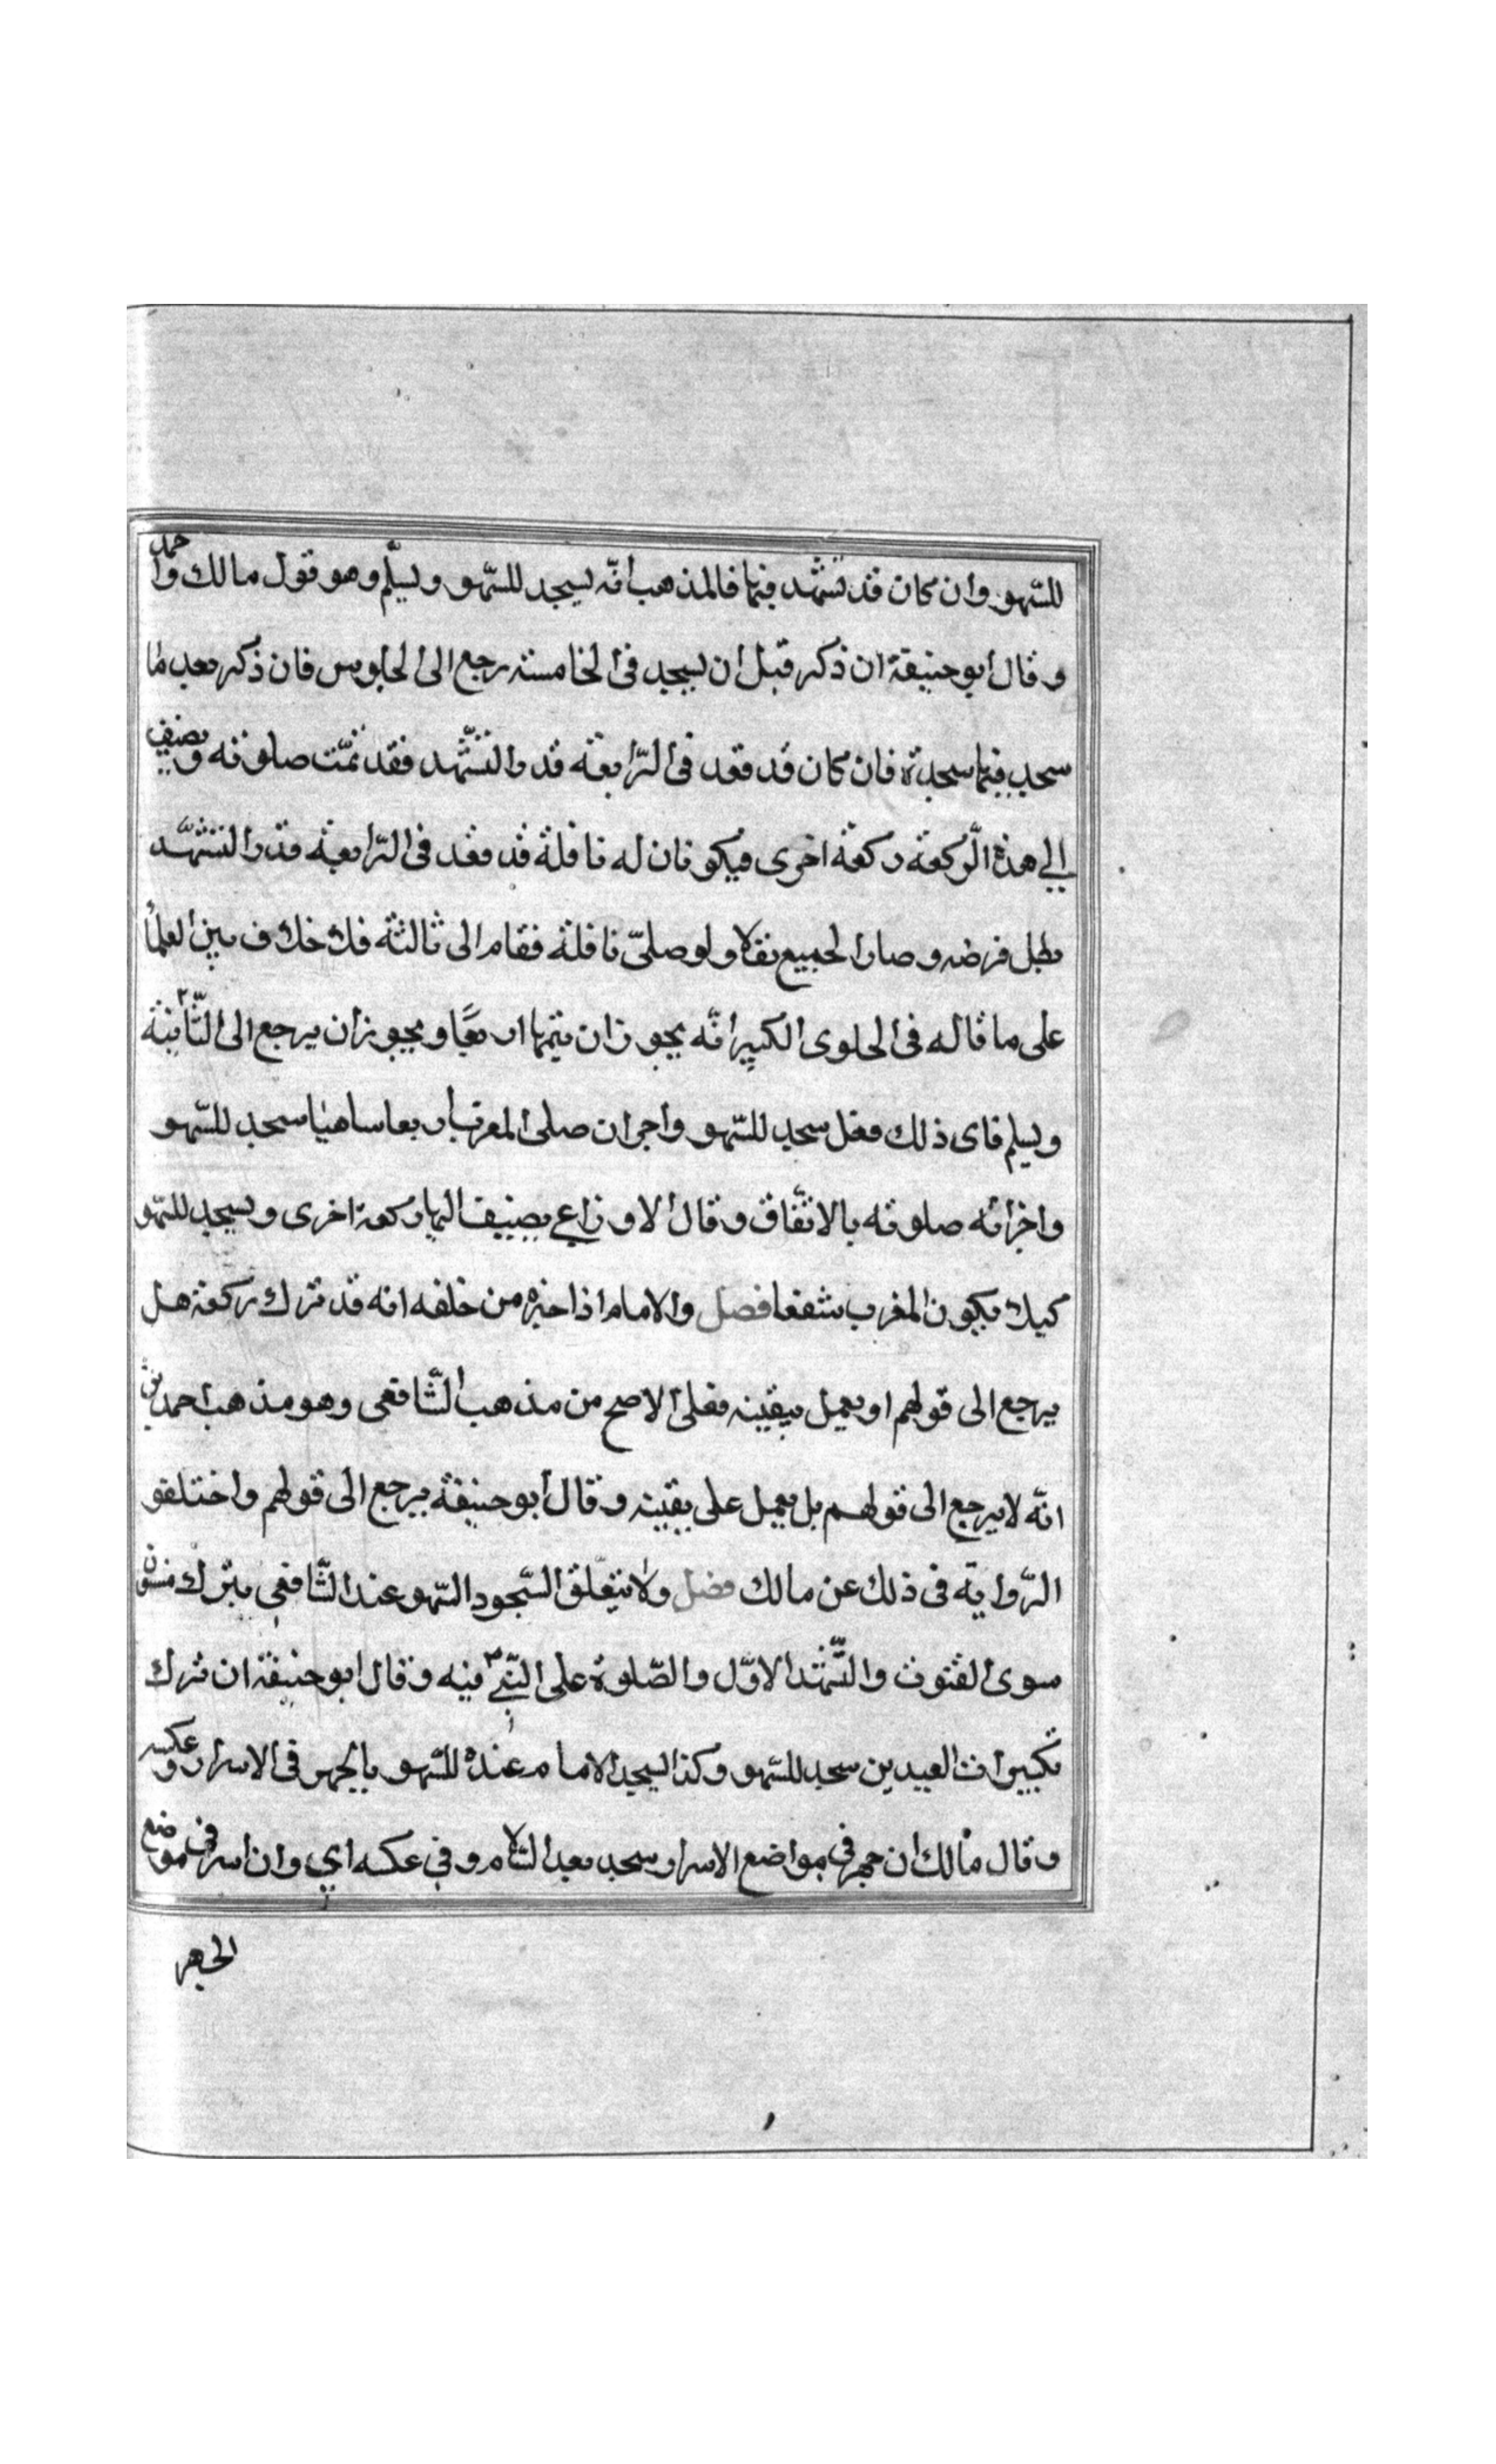 للسّهو وان كان قد تشهّد فيها فالمذهب انّه يسجد للسّهو ويسلّم وهو قول مالك واحمد
وقال ابو حنيفة ان ذكر قبل ان يسجد فى الخامسة رجع الى الجلوس فان ذكر بعد ما
سجد فيها سجدة فان كان قد قعد فى الرّابعة قدر التشّهد فقد تمّت صلوته ويضيف
الي هذه الرّكعة ركعة اخرى فيكونان له نافلة قد فقد فى الرّابعة قدر التشهّد
بطل فرضه وصار الجميع نفلا ولو صلىّ نافلة فقام الى ثالثة فلا خلاف بين العلمأ
على ما قاله فى الحلوى الكبير انّه يجوز ان يتمها اربعًا ويجوز ان يرجع الى الثّانية
ويسلم فاى ذلك فعل سجد للسّهو واجران صلى المغرب اربعا ساهيا سجد للسّهو
واجزأته صلوته بالاتّفاق وقال الاوزاعي يضيف اليها ركعة اخرى ويسجد للسّهو
كيلا يكون المغرب شفعا فصل والامام اذا اخبره من خلفه انه قد ترك ركعة هل
يرجع الى قولهم او يعمل بيقينه فعلى الاصح من مذهب الشّافعى وهو مذهب احمد
انّه لا يرجع الى قولهم بل يعمل على يقينه وقال ابو حنيفة يرجع الى قولهم واختلفو
الرّواية فى ذلك عن مالك فصل ولا يتعلق السّجود السّهو عند الشّافعى بترك مسنون
سوى القنوت والتّشهّد الاوّل والصّلوة على النّبي فيه وقال ابو حنيفة ان ترك
تكبيرات العيدين سجد للسّهو وكذا يسجد الامام عنده للسّهو بالجهر فى الاسرار وعكسه
وقال مالك ان جهر في مواضع الاسرار سجد بعد السّلام وفي عكسه اي وان اسر في موضع
الجهر